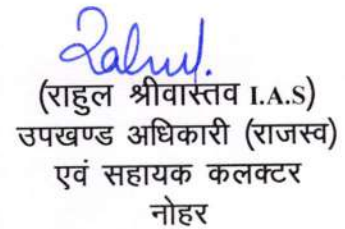 Rahul.
(राहुल श्रीवास्तव I.A.S)
उपखण्ड अधिकारी (राजस्व)
एवं सहायक कलक्टर
नोहर